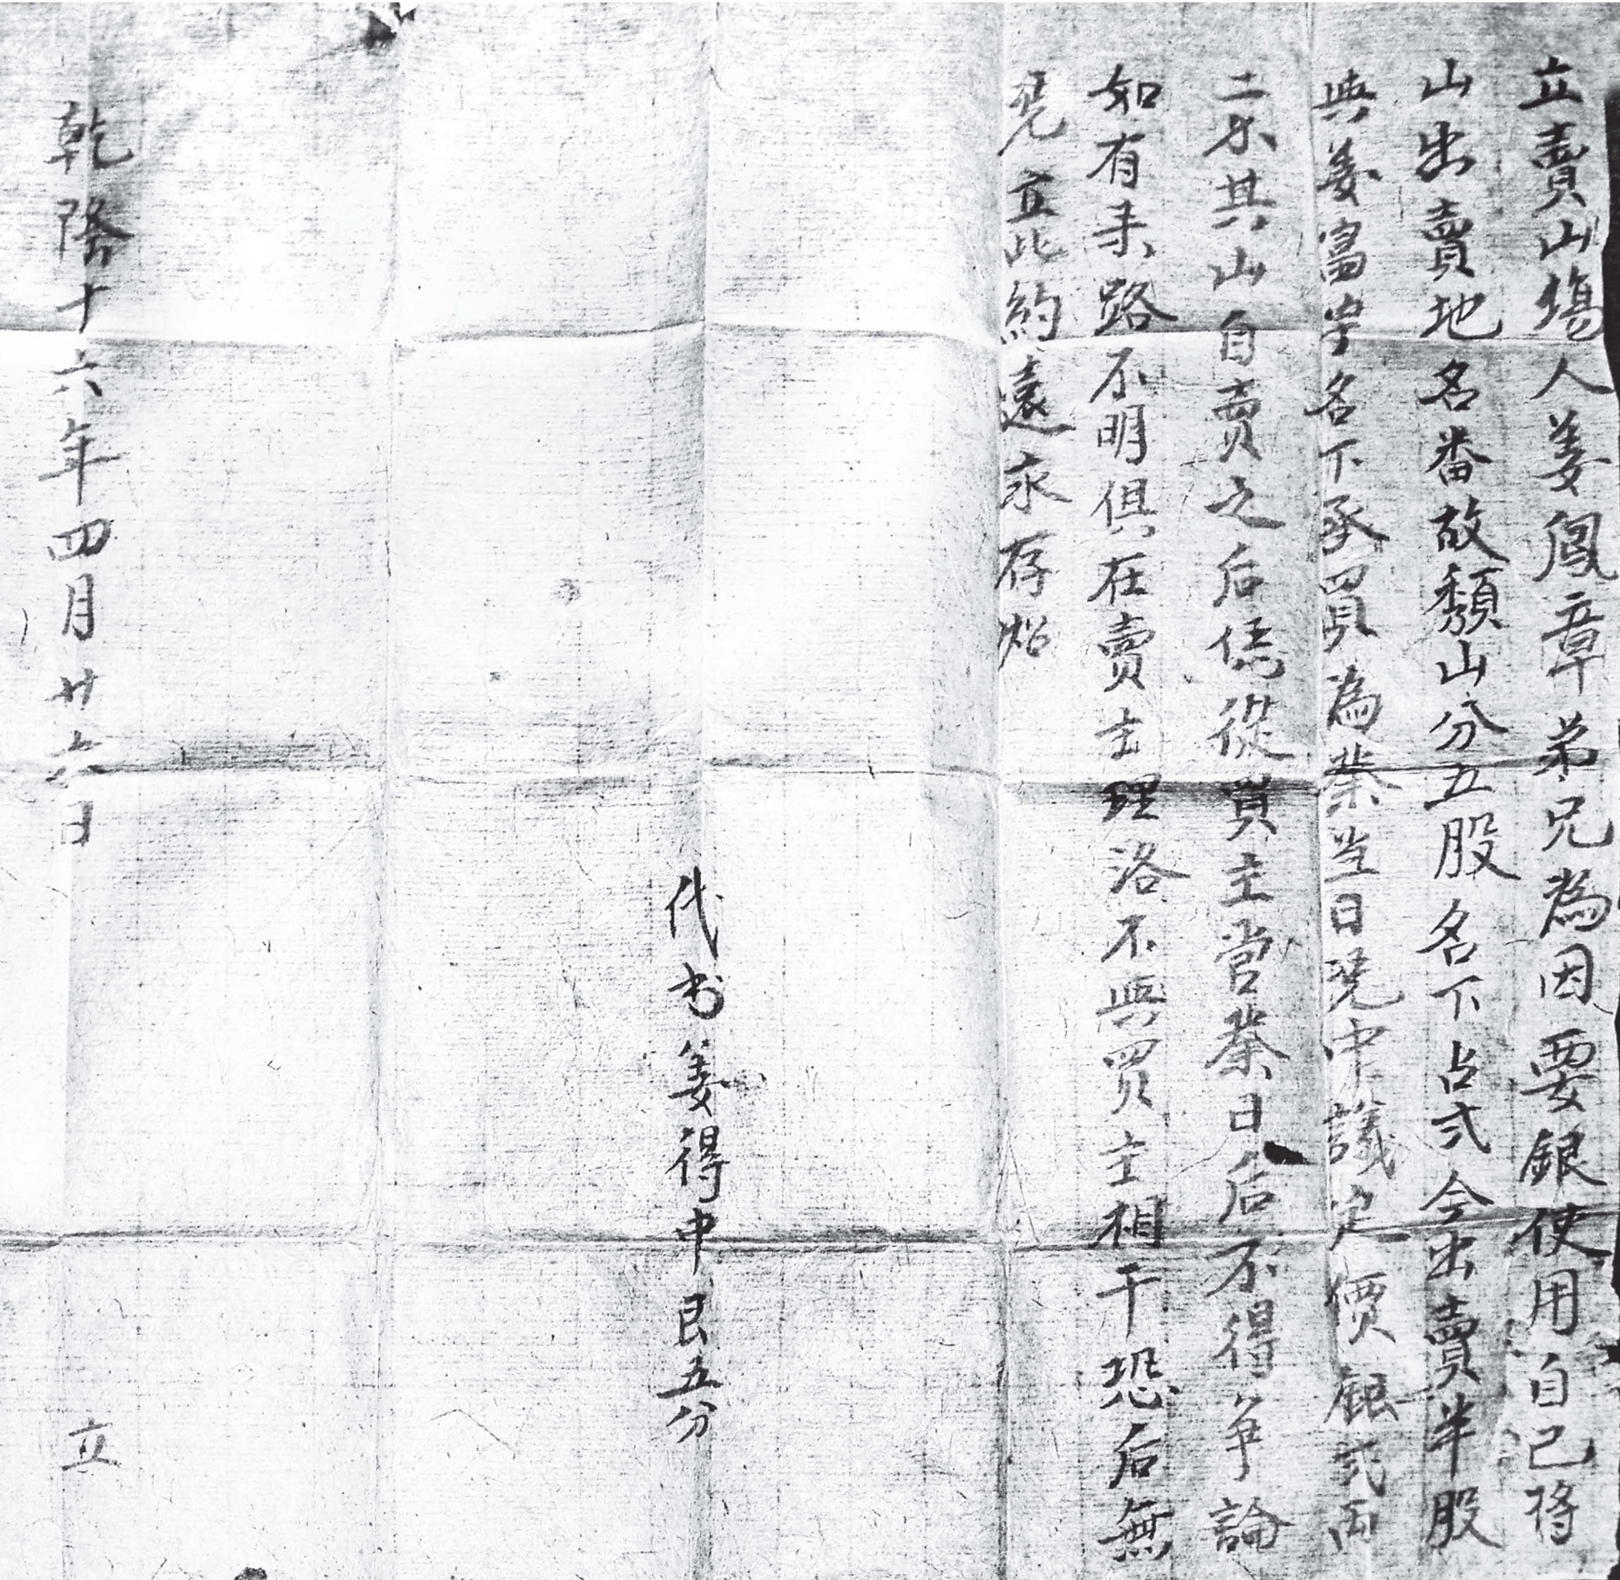 立賣山塲人姜鳳章弟兄為因要銀使用自己將
山出賣地名番故顏山分五股名下占弍今出賣半股
與姜富宇名下承買為業當日凴中議定價銀弍両
二小其山自賣之后凴從買主管業日后不得争論
如有来路不明俱在賣主理洛不與買主相干恐后無
凴立此約遠永存炤
代书姜得中艮五分
乾隆十六年四月廿六日 立